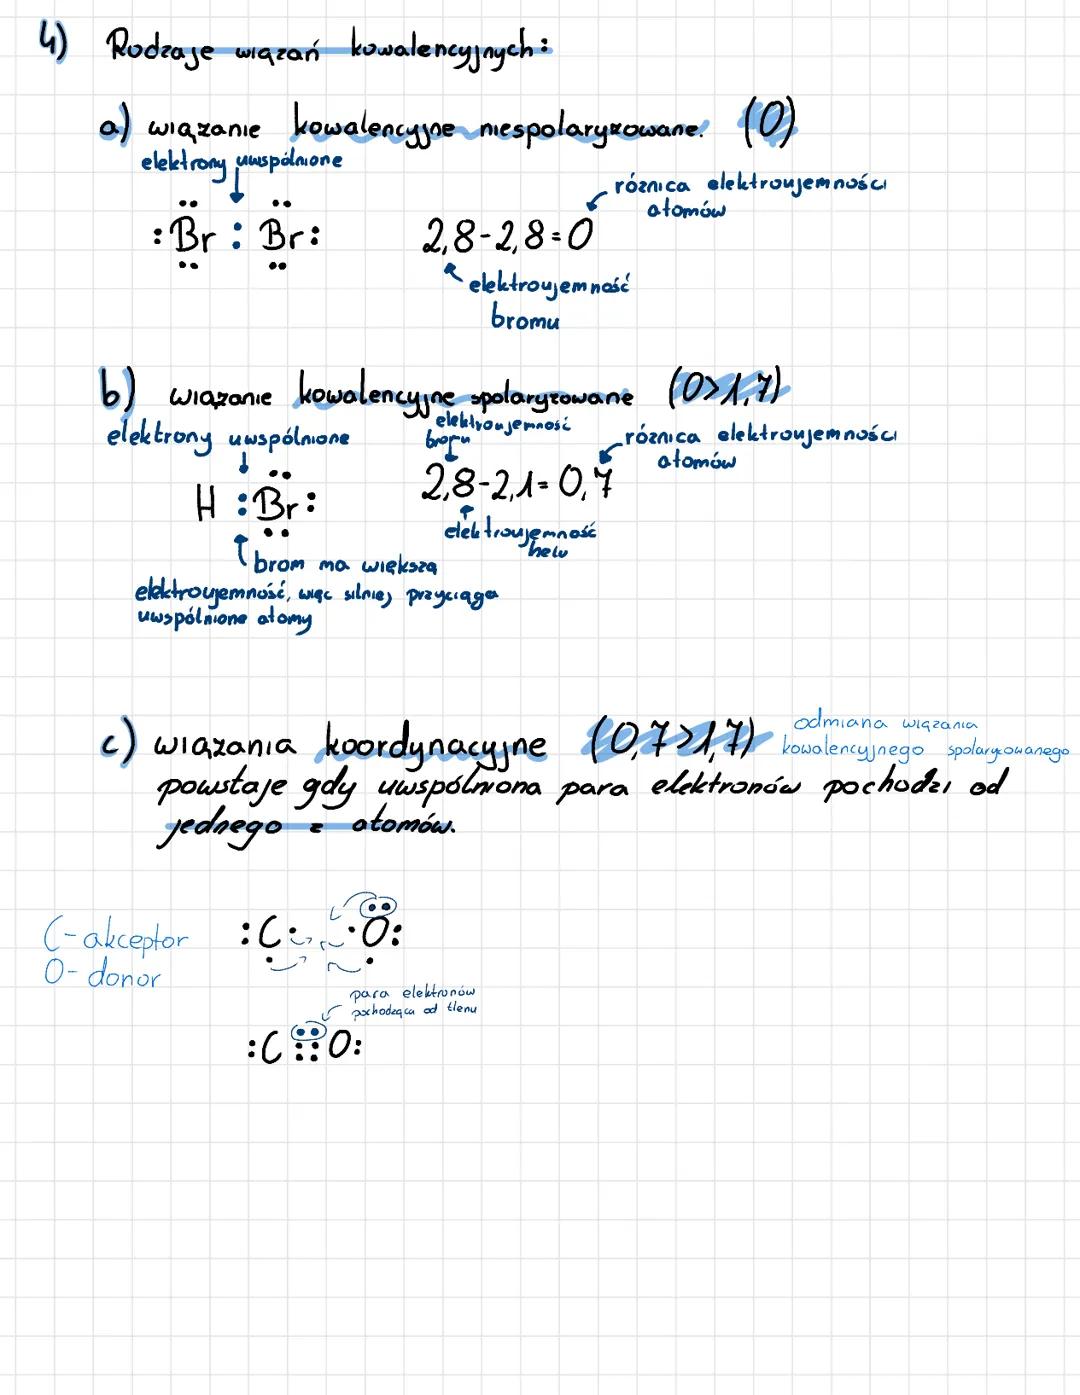 4) Rodzaje wiązań kowalencyjnych:
a) wiązanie kowalencyjne niespolaryzowane. (0)
elektrony uwspólnione
różnica elektroujemności
atomów
:Br : Br:
2,8-2,8=0
elektroujemność
bromu
b) wiązanie kowalencyjne spolaryzowane (0>1,7)
elektrony uwspólnione
elektroujemność
różnica elektroujemności
atomów
H :Br:
2,8-2,1=0,7
elektroujemność
helu
brom ma większą
elektroujemność, więc silniej przyciąga
uwspólnione atomy
c) wiązania koordynacyjne (0,7>1,7)
odmiana wiązania
kowalencyjnego spolaryzowanego
powstaje gdy uwspólniona para elektronów pochodzi od
jednego z atomów.
C-akceptor
O-donor
:C· ·O:
para elektronów
pochodząca od tlenu
:C ⋮⋮ O: